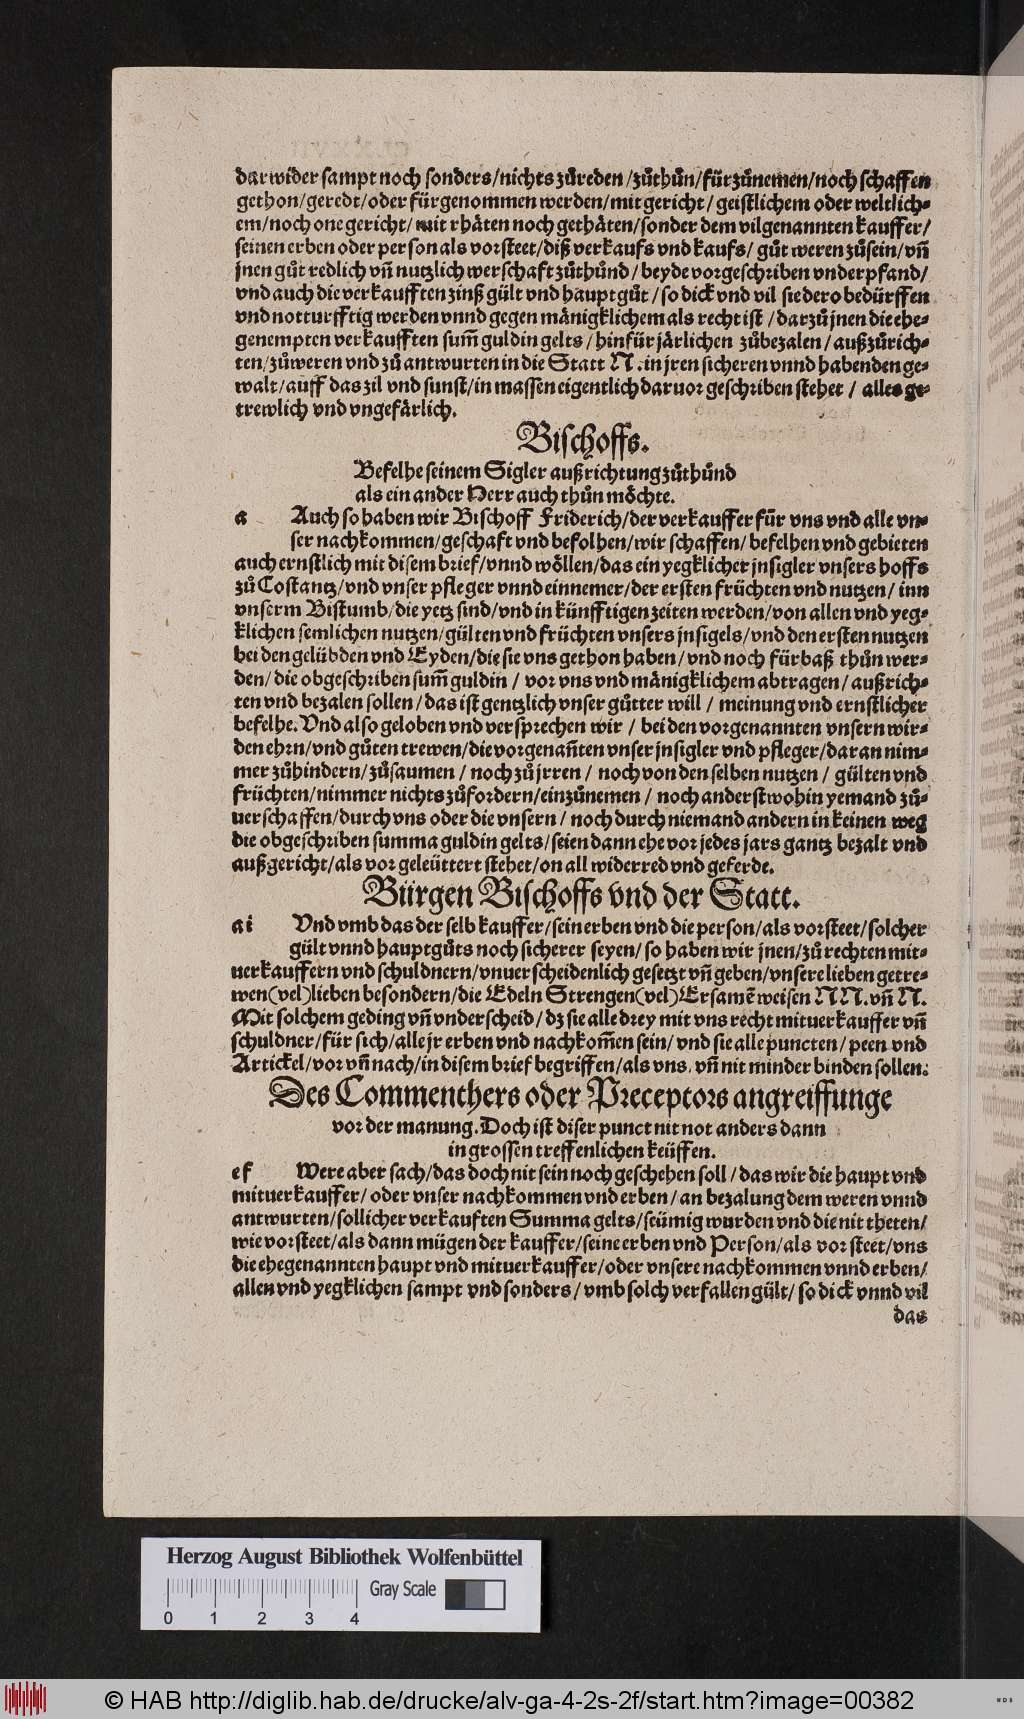 darwider sampt noch sonders/nichts zůreden/zůthůn/fürzůnemen/noch schaffen
gethon/geredt/oder fürgenommen werden/mit gericht/geistlichem oder weltlich-
em/noch one gericht/mit rhäten noch gethäten/sonder dem vilgenannten kauffer/
seinen erben oder person als vorsteet/diß verkaufs vnd kaufs/gůt weren zůsein/vñ
jnen gůt redlich vñ nutzlich werschaft zůthůnd/beyde vorgeschriben vnderpfand/
vnd auch die verkaufften zinß gült vnd hauptgůt/so dick vnd vil sie dero bedürffen
vnd notturfftig werden vnnd gegen mänigklichem als recht ist/darzů jnen die ehe-
genempten verkaufften sum̃ guldin gelts/hinfür järlichen zůbezalen/außzůrich-
ten/zůweren vnd zů antwurten in die Statt N. in jren sicheren vnnd habenden ge-
walt/auff das zil vnd sunst/in massen eigentlich daruor geschriben stehet/alles ge-
trewlich vnd vngefärlich.
Bischoffs.
Befelhe seinem Sigler außrichtung zůthůnd
als ein ander Herr auch thůn möchte.
a Auch so haben wir Bischoff Friderich/der verkauffer für vns vnd alle vn-
ser nachkommen/geschaft vnd befolhen/wir schaffen/befelhen vnd gebieten
auch ernstlich mit disem brief/vnnd wöllen/das ein yegklicher jnsigler vnsers hoffs
zů Costantz/vnd vnser pfleger vnnd einnemer/der ersten früchten vnd nutzen/inn
vnserm Bistumb/die yetz sind/vnd in künfftigen zeiten werden/von allen vnd yeg-
klichen semlichen nutzen/gülten vnd früchten vnsers jnsigels/vnd den ersten nutzen
bei den gelübden vnd Eyden/die sie vns gethon haben/vnd noch fürbaß thůn wer-
den/die obgeschriben sum̃ guldin/vor vns vnd mänigklichem abtragen/außrich-
ten vnd bezalen sollen/das ist gentzlich vnser gůtter will/meinung vnd ernstlicher
befelhe. Vnd also geloben vnd versprechen wir/bei den vorgenannten vnsern wir-
den ehrn/vnd gůten trewen/die vorgenañten vnser jnsigler vnd pfleger/daran nim-
mer zůhindern/zůsaumen/noch zů jrren/noch von den selben nutzen/gülten vnd
früchten/nimmer nichts zůfordern/einzůnemen/noch anderstwohin yemand zů-
uerschaffen/durch vns oder die vnsern/noch durch niemand andern in keinen weg
die obgeschriben summa guldin gelts/seien dann ehe vor jedes jars gantz bezalt vnd
außgericht/als vor geleüttert stehet/on all widerred vnd geferde.
Bürgen Bischoffs vnd der Statt.
ai Vnd vmb das der selb kauffer/sein erben vnd die person/als vorsteet/solcher
gült vnnd hauptgůts noch sicherer seyen/so haben wir jnen/zů rechten mit-
uerkauffern vnd schuldnern/vnuerscheidenlich gesetzt vñ geben/vnsere lieben getre-
wen(vel)lieben besondern/die Edeln Strengen(vel)Ersamẽ weisen NN. vñ N.
Mit solchem geding vñ vnderscheid/dz sie alle drey mit vns recht mituerkauffer vñ
schuldner/für sich/alle jr erben vnd nachkom̃en sein/vnd sie alle puncten/peen vnd
Artickel/vor vñ nach/in disem brief begriffen/als vns, vñ nit minder binden sollen.
Des Commenthers oder Preceptors angreiffunge
vor der manung. Doch ist diser punct nit not anders dann
in grossen treffenlichen keüffen.
ef Were aber sach/das doch nit sein noch geschehen soll/das wir die haupt vnd
mituerkauffer/oder vnser nachkommen vnd erben/an bezalung dem weren vnnd
antwurten/sollicher verkauften Summa gelts/seümig wurden vnd die nit theten/
wie vorsteet/als dann mügen der kauffer/seine erben vnd Person/als vorsteet/vns
die ehegenannten haupt vnd mituerkauffer/oder vnsere nachkommen vnnd erben/
allen vnd yegklichen sampt vnd sonders/vmb solch verfallen gült/so dick vnnd vil
das
Herzog August Bibliothek Wolfenbüttel
Gray Scale
0 1 2 3 4
© HAB http://diglib.hab.de/drucke/alv-ga-4-2s-2f/start.htm?image=00382